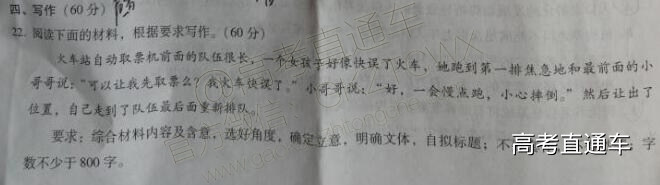 四、写作（60分）
22. 阅读下面的材料，根据要求写作。（60分）
火车站自动取票机前面的队伍很长，一个女孩子好像快误了火车，她跑到第一排焦急地和最前面的小
哥哥说：“可以让我先取票么？我火车快误了。”小哥哥说：“好，一会慢点跑，小心摔倒。”然后让出了
位置，自己走到了队伍最后面重新排队。
要求：综合材料内容及含意，选好角度，确定立意，明确文体，自拟标题；不 字
数不少于800字。
高考直通车